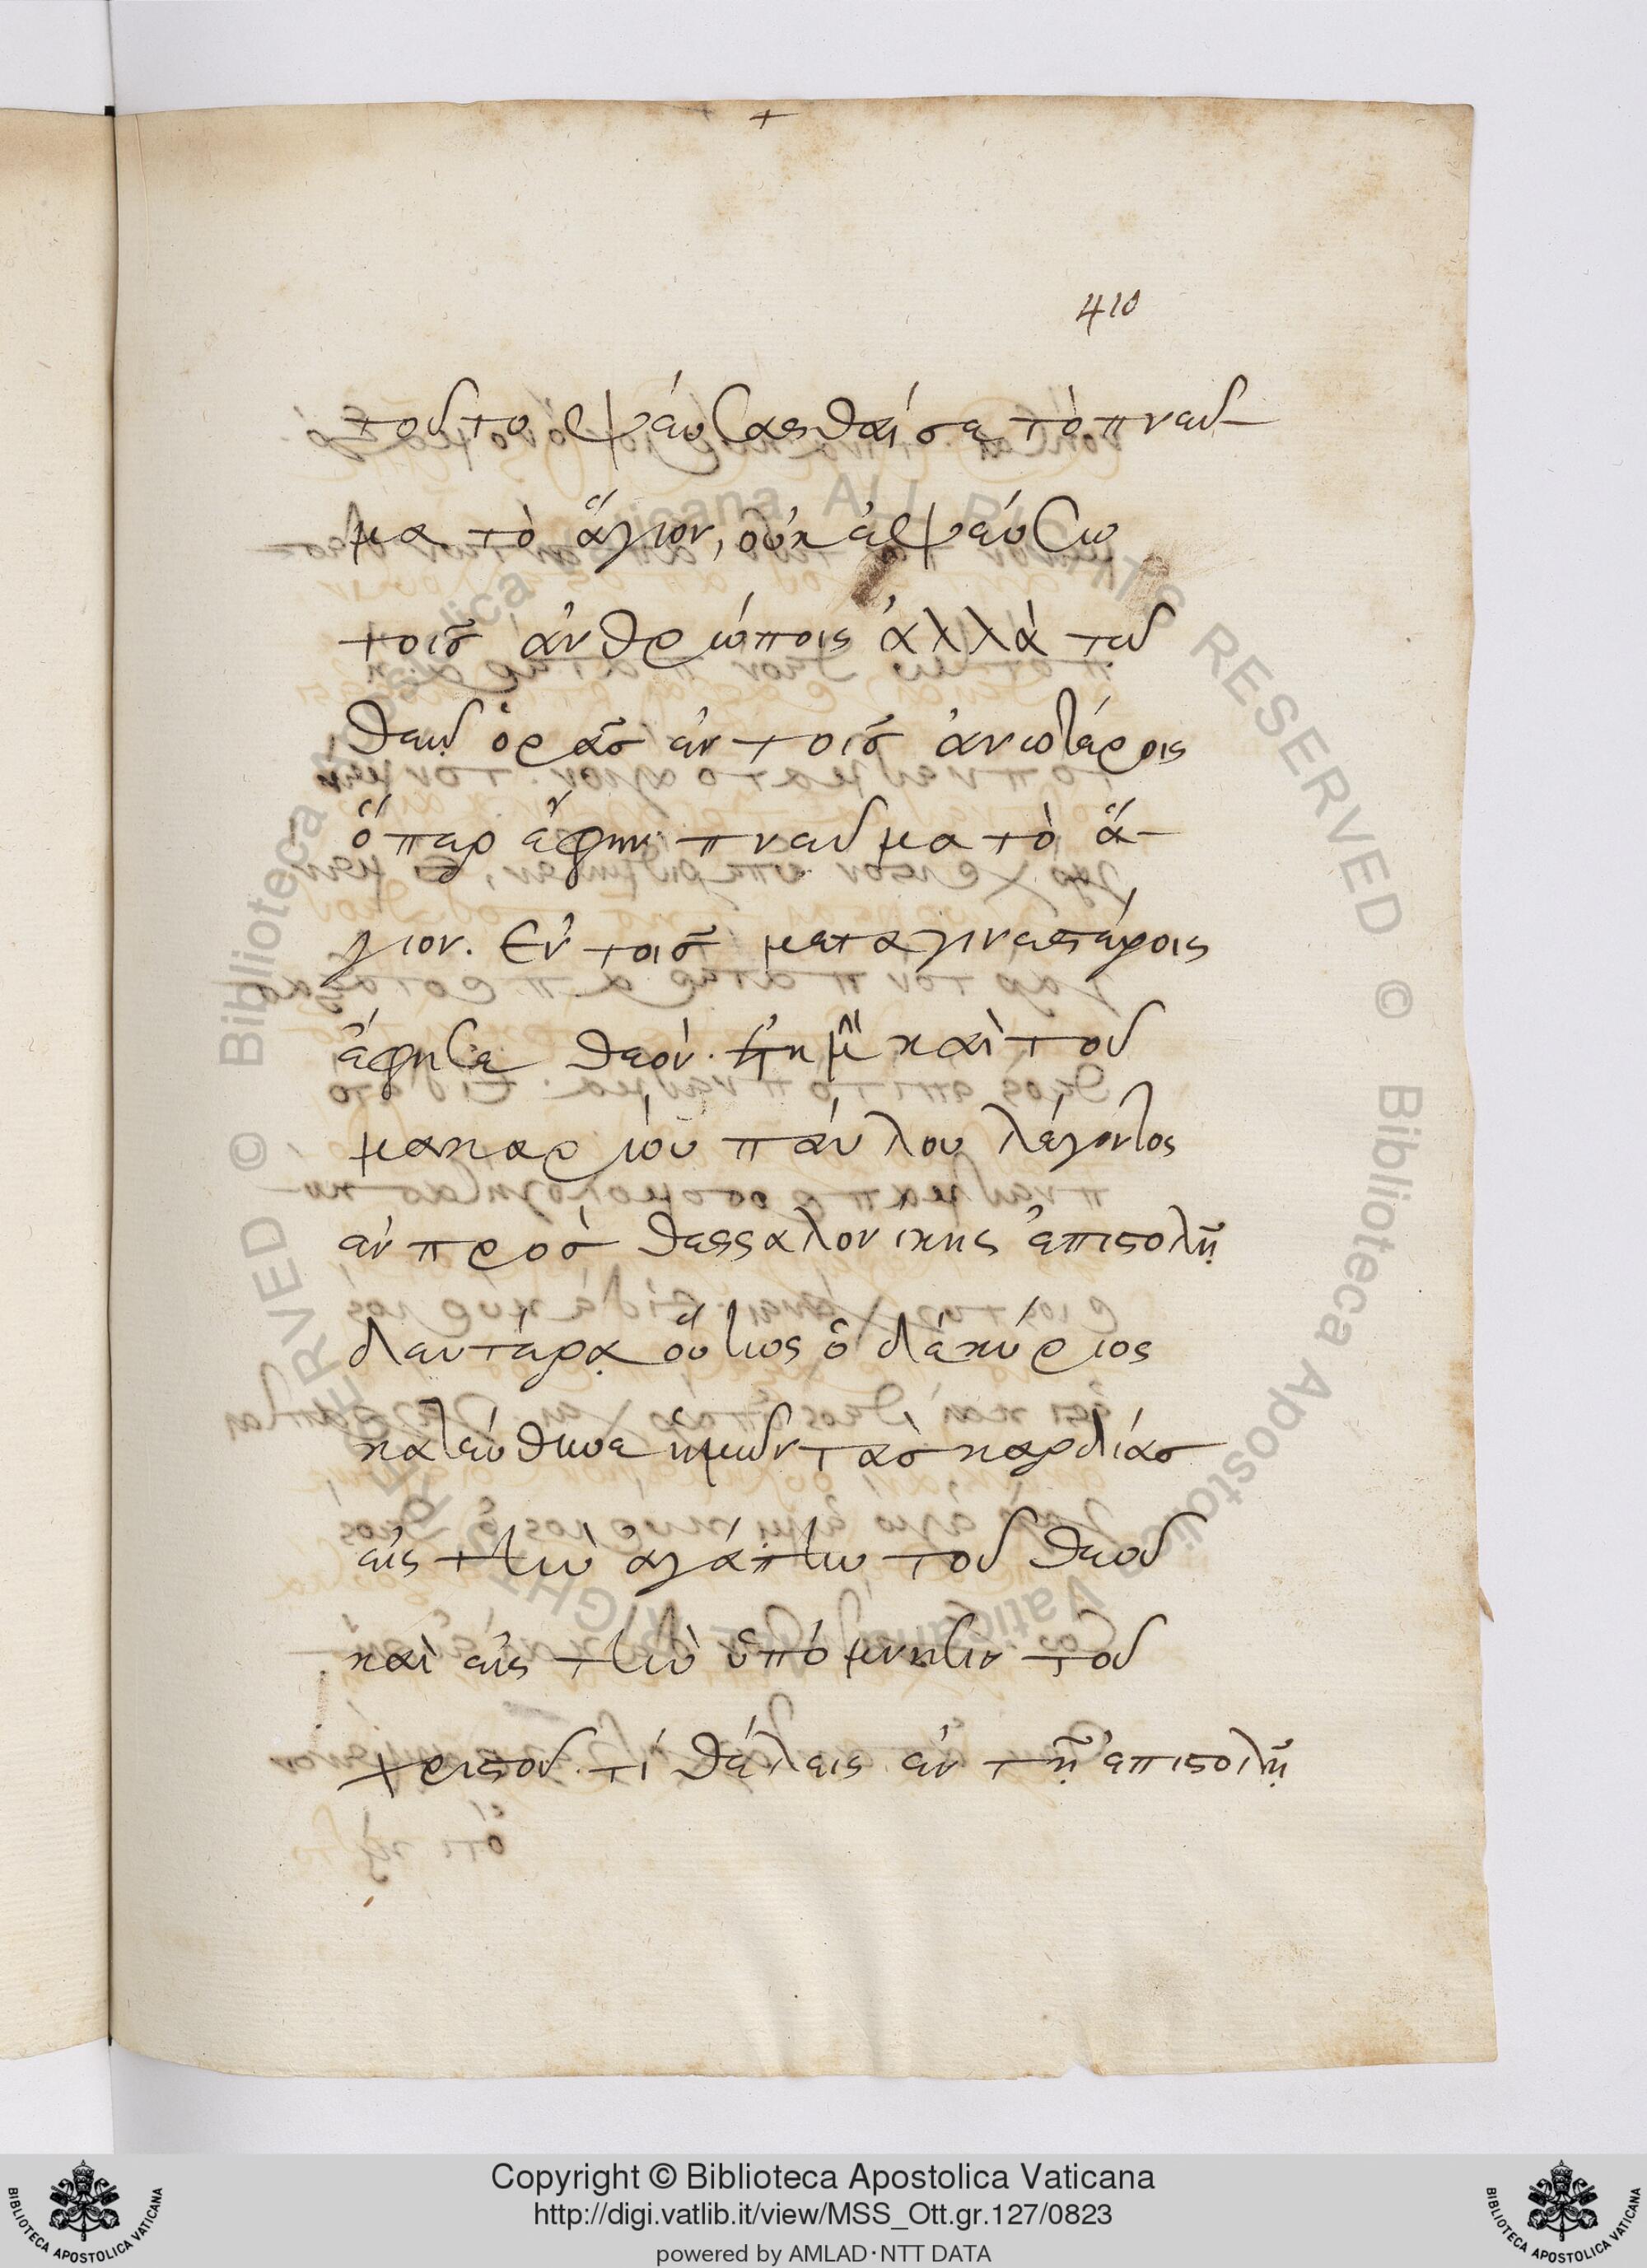 410
τοῦτο ψεύσασθαί σε τὸ πνεῦ-
μα τὸ ἅγιον, οὐκ ἐψεύσω
τοῖς ἀνθρώποις ἀλλὰ τῶ
θεῶ ὁρᾶς ἐν τοῖς ἀνωτέροις
ὅπερ ἔφην πνεῦμα τὸ ἅ-
γιον. Ἐν τοῖς μεταγενεστέροις
ἔφησε θεόν. καὶ τοῦ
μακαρίου παύλου λέγοντος
ἐν πρὸς θεσσαλονίκης ἐπιστολῇ
δευτέρᾳ οὕτως ὁ δὲ κύριος
κατεύθυνε ἡμῶν τὰς καρδίας
εἰς τὴν ἀγάπην τοῦ θεοῦ
καὶ εἰς τὴν ὑπόμνησιν τοῦ
χριστοῦ. τί θέλεις ἐν τῇ ἐπιστολῇ
Copyright © Biblioteca Apostolica Vaticana
http://digi.vatlib.it/view/MSS_Ott.gr.127/0823
powered by AMLAD·NTT DATA
BIBLIOTECA APOSTOLICA VATICANA
BIBLIOTECA APOSTOLICA VATICANA
© Biblioteca Apostolica Vaticana ALL RIGHTS RESERVED © Biblioteca Apostolica Vaticana ALL RIGHTS RESERVED